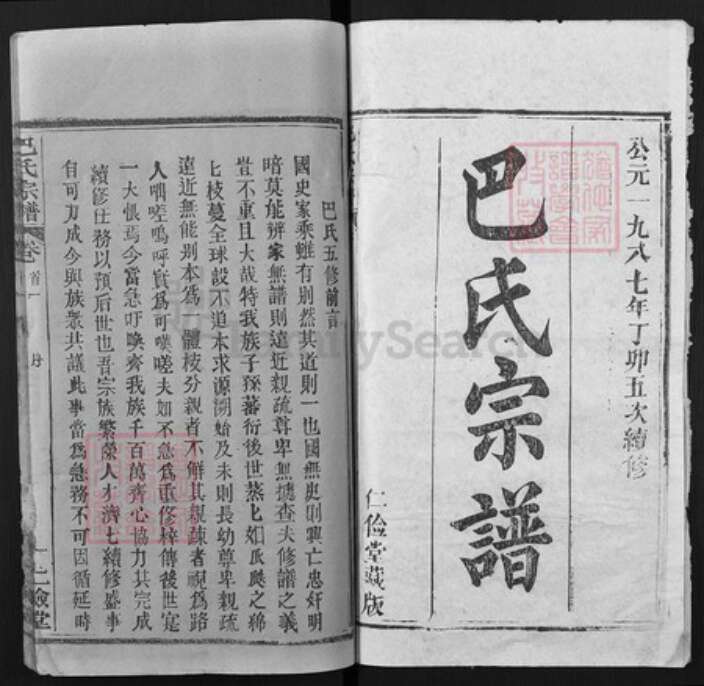 公元一九八七年丁卯五次續修
巴氏宗譜
仁儉堂藏版
巴氏五修前言
國史家乘雖有别然其道則一也國無史則興亡忠奸明
暗莫能辨家無譜則遠近親疏尊卑無據查夫修譜之義
豈不重且大哉特我族子孫蕃衍後世蒸匕如瓜瓞之綿
匕枝蔓全球設不追本求源溯始及末則長幼尊卑親疏
遠近無能别本為一體枝分親者不解其親疎者視為路
人嗚呼實為可嘆嗟夫如不急為重修梓傳後世寔
一大恨焉今當急吁喚齊我族千百萬齊心協力共完成
續修任務以預后世也吾宗族繁榮人才濟匕續修盛事
自可力成今與族衆共議此事當為急務不可因循延時
巴氏宗譜
卷首
一
仁儉堂
FamilySearch